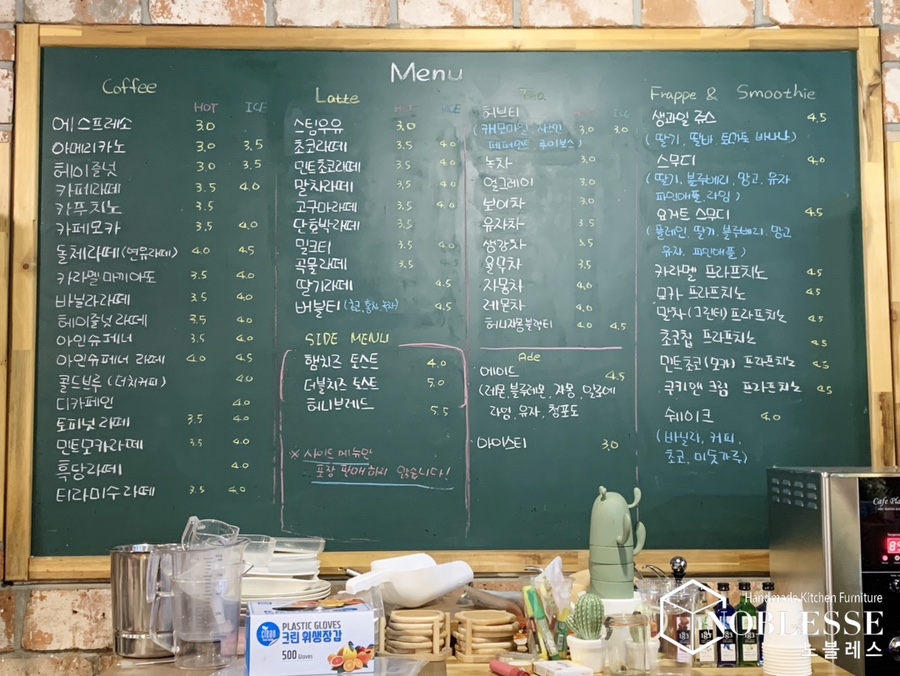 Menu
Coffee
HOT ICE
에스프레소 3.0
아메리카노 3.0 3.5
헤이즐넛 3.0 3.5
카페라떼 3.5 4.0
카푸치노 3.5
카페모카 3.5 4.0
돌체라떼(연유라떼) 4.0 4.5
카라멜 마끼아또 3.5 4.0
바닐라라떼 3.5 4.0
헤이즐넛 라떼 3.5 4.0
아인슈페너 3.5 4.0
아인슈페너 라떼 4.0 4.5
콜드브루 (더치커피) 4.0
디카페인 4.0
토피넛 라떼 3.5 4.0
민트모카라떼 3.5 4.0
흑당라떼 4.0
티라미수라떼 3.5 4.0
Latte
HOT ICE
스팀우유 3.0
초코라떼 3.5 4.0
민트초코라떼 3.5 4.0
말차라떼 3.5 4.0
고구마라떼 3.5 4.0
단호박라떼 3.5
밀크티 3.5 4.0
곡물라떼 3.5 4.5
딸기라떼 4.5
버블티 4.5
SIDE MENU
햄치즈 토스트 4.0
더블치즈 토스트 5.0
허니브레드 5.5
※ 사이드 메뉴만
포장 판매하지 않습니다!
Tea
ICE
허브티
(캐모마일, 3.0 3.0
페퍼민트, 루이보스)
녹차 3.0
얼그레이 3.0
보이차 3.0
유자차 3.5
생강차 3.5
율무차 3.5
자몽차 4.0
레몬차 4.0
허니자몽블랙티 4.0 4.5
Ade
에이드 4.5
(레몬, 블루레몬, 자몽,
라임, 유자, 청포도
아이스티 3.0
Frappe & Smoothie
생과일 쥬스 4.5
(딸기, 딸바, 토마토, 바나나)
스무디 4.0
(딸기, 블루베리, 망고, 유자
파인애플, 라임)
요거트 스무디 4.5
(플레인, 딸기, 블루베리, 망고
유자, 파인애플)
카라멜 프라프치노 4.5
모카 프라프치노 4.5
말차(그린티) 프라프치노 4.5
초코칩 프라프치노 4.5
민트초코(모카) 프라프치노 4.5
쿠키앤크림 프라프치노 4.5
쉐이크 4.0
(바닐라, 커피,
초코, 미숫가루)
Cafe
PLASTIC GLOVES
크린 위생장갑
500 Gloves
Handmade Kitchen Furniture
NOBLESSE
노블레스